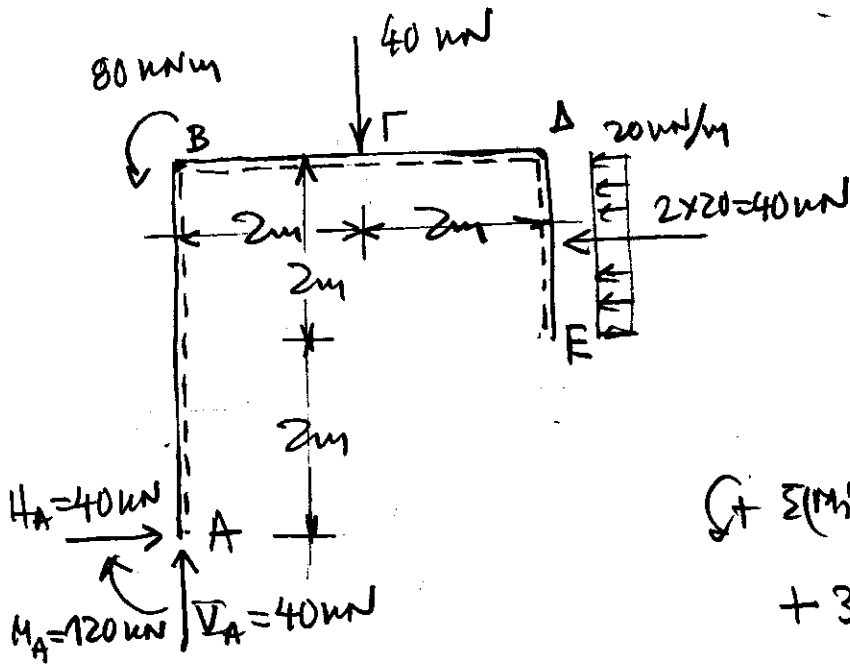 40 kN
80 kNm
B
Γ
Δ
20 kN/m
2×20=40kN
2m
2m
2m
E
2m
H_A=40kN
A
↺+ Σ(M
M_A=120kN
V_A=40kN
+ 3